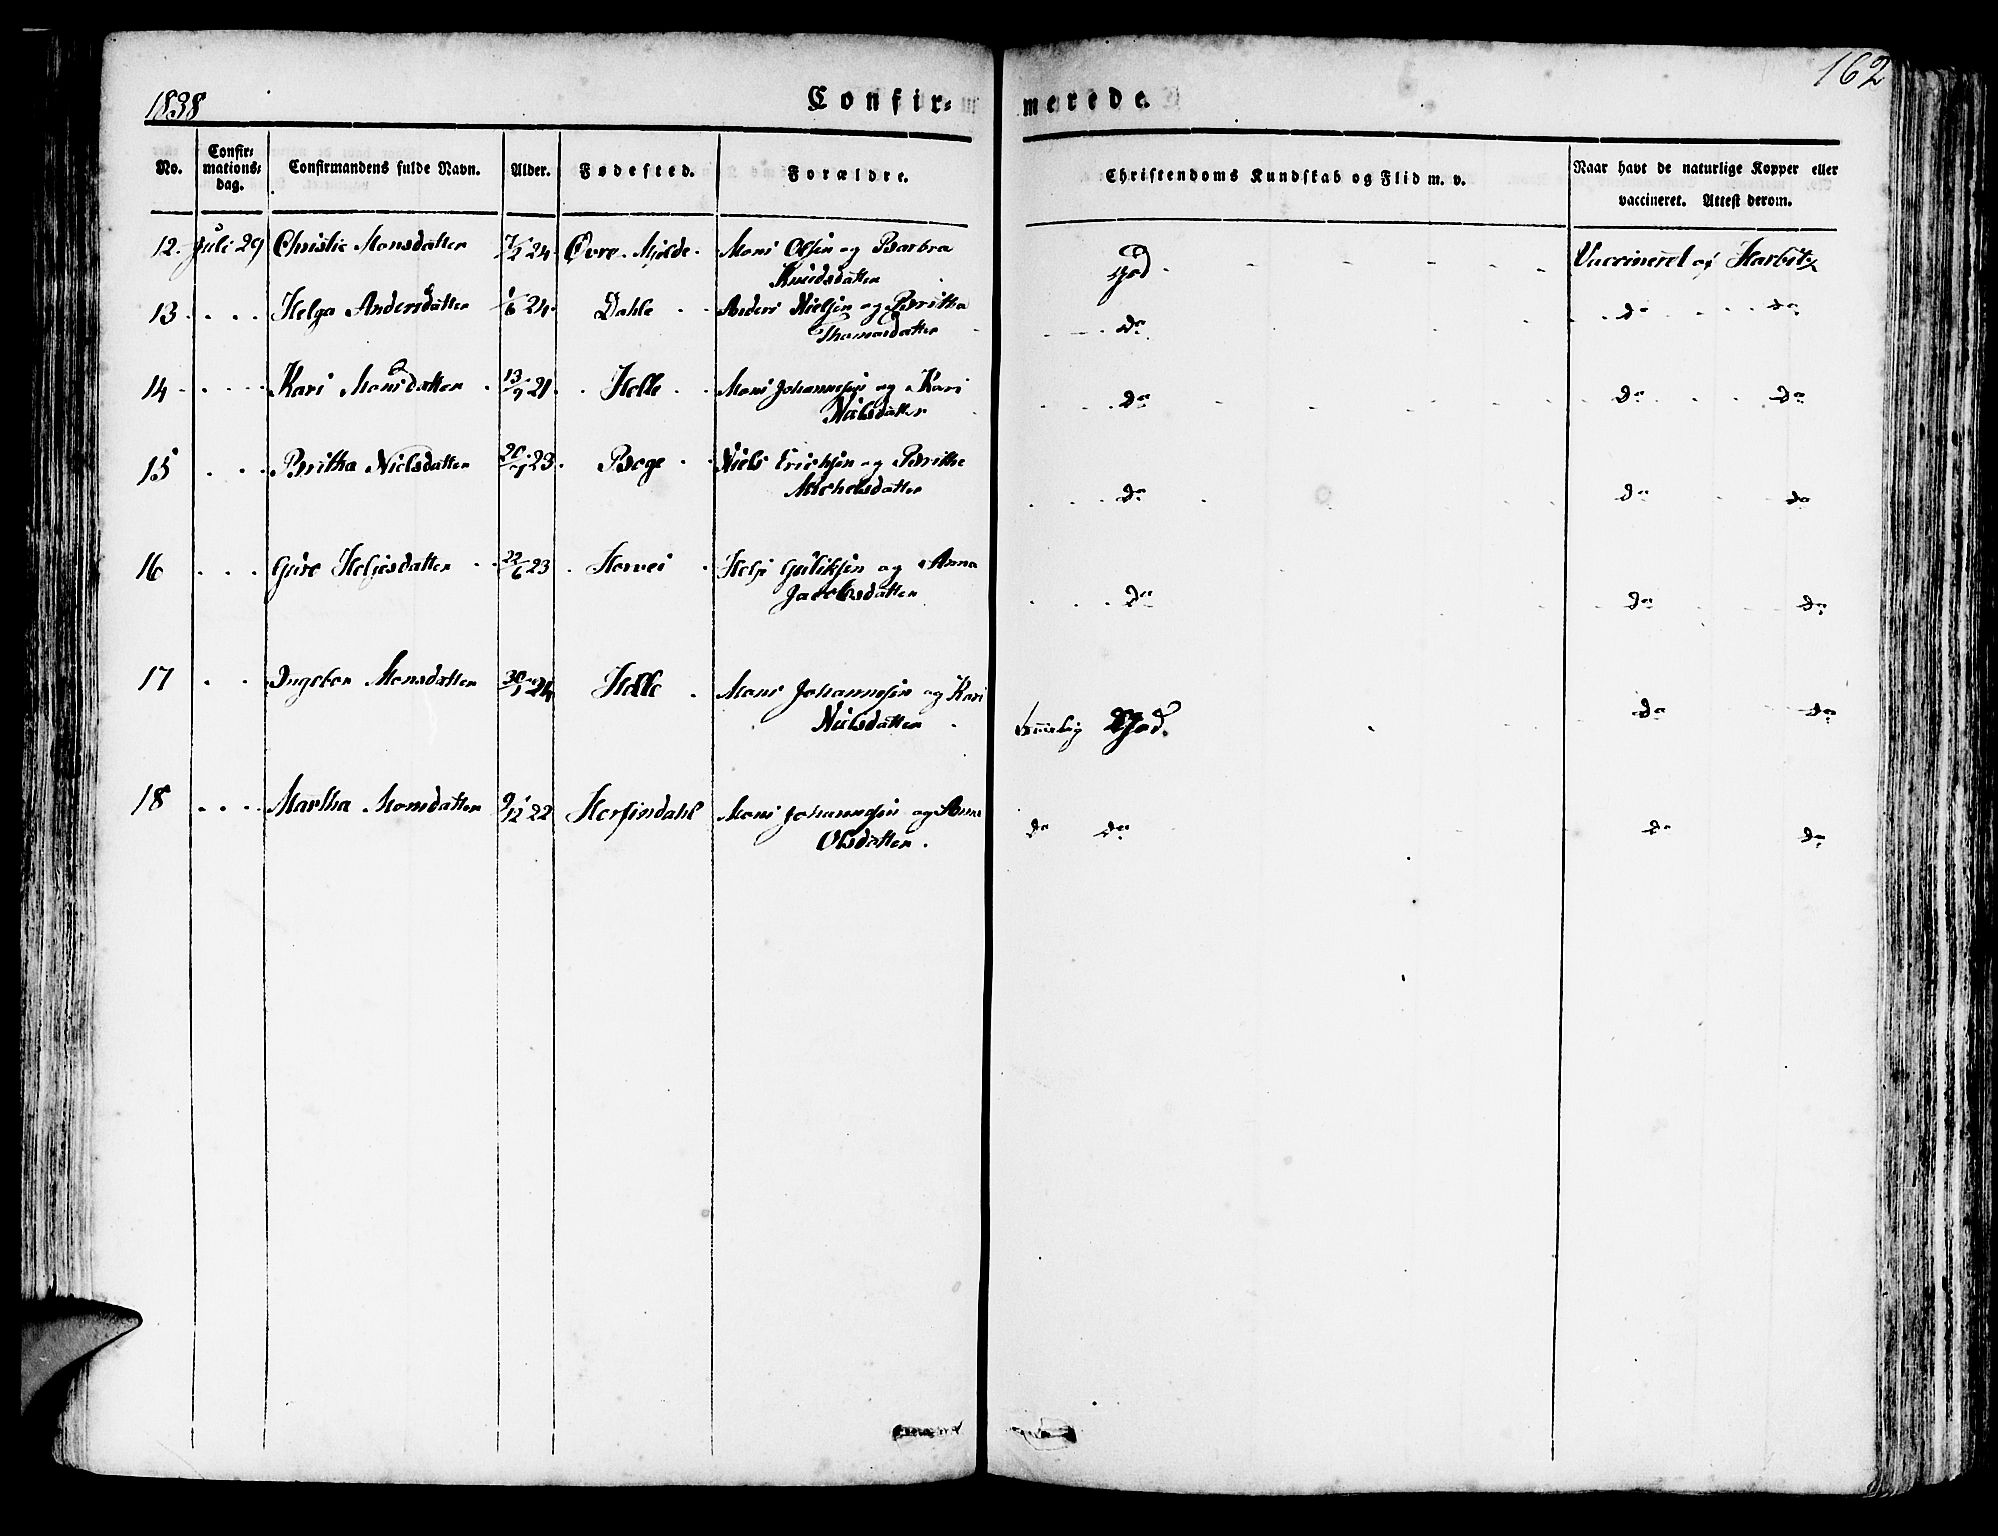 162
1838
Confir=
merede.
No.
Confir=
mations=
dag.
Confirmandens fulde Navn.
Alder.
Fødested.
Forældre.
Christendoms Kundskab og Flid m. v.
Naar havt de naturlige Kopper eller
vaccineret. Attest derom.
12. Juli 29 Christie Monsdatter 24 Øvre Mjelde Mons Olsen og Barbra
Knudsdatter
God Vaccineret af Harbitz
13 Helga Andersdatter 1/6 24 Dahle Anders Nielsen og Britha
Thomasdatter
do do do
14 Kari Monsdatter 13/9 21 Helle Mons Johannesen og Kari
Nielsdatter
do do do
15 Britha Nielsdatter 20/1 23 Boge Niels Ericksen og Britha
Michelsdatter
do do do
16 Guro Heljesdatter 22/6 23 Helje Guliksen og Anna
Jacobsdatter
do do do
17 Ingebor Monsdatter 30/1 24 Helle Mons Johannesen og Kari
Nielsdatter
temelig God. do do
18 Martha Monsdatter 9/12 22 Herfindahl Mons Johannesen og Anna
Olsdatter.
do do do do